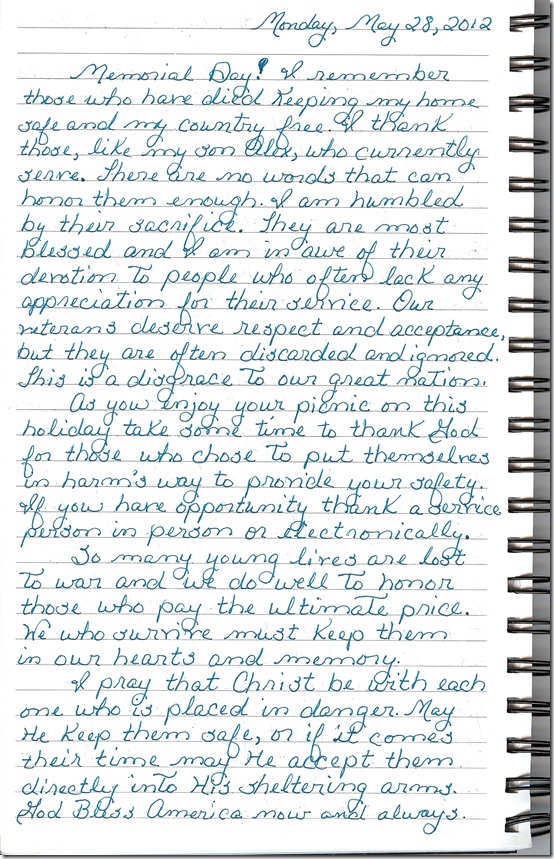 Monday, May 28, 2012
Memorial Day! I remember
those who have died keeping my home
safe and my country free. I thank
those, like my son Alex, who currently
serve. There are no words that can
honor them enough. I am humbled
by their sacrifice. They are most
blessed and I am in awe of their
devotion to people who often lack any
appreciation for their service. Our
veterans deserve respect and acceptance,
but they are often discarded and ignored.
This is a disgrace to our great nation.
As you enjoy your picnic on this
holiday take some time to thank God
for those who chose to put themselves
in harm's way to provide your safety.
If you have opportunity thank a service
person in person or electronically.
So many young lives are lost
to war and we do well to honor
those who pay the ultimate price.
We who survive must keep them
in our hearts and memory.
I pray that Christ be with each
one who is placed in danger. May
He keep them safe, or if it comes
their time may He accept them
directly into His sheltering arms.
God Bless America now and always.